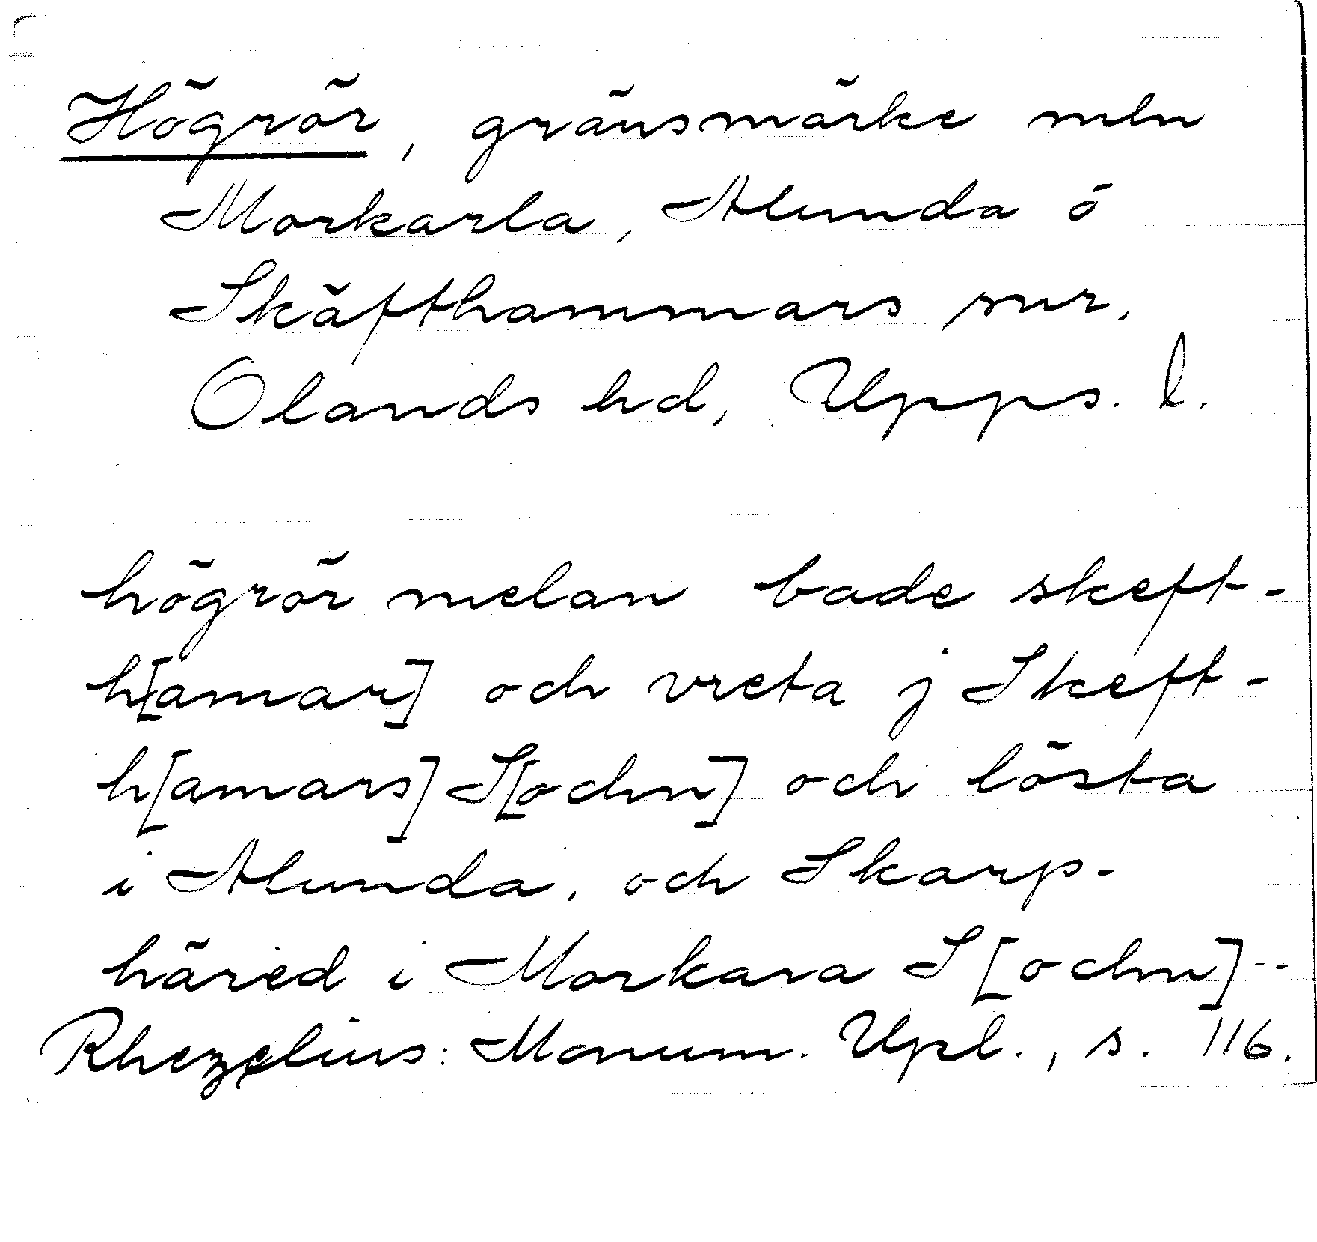 Högrör, gränsmärke mln
Morkarla, Alunda o
Skäfthammars snr,
Olands hd, Upps. l.
högrör melan bade skeft-
h[amar] och vreta j Skeft-
h[amars] S[ochn] och lösta
i Alunda, och Skarp-
häred i Morkara S[ochn]--
Rhezelius: Monum. Upl., s. 116.